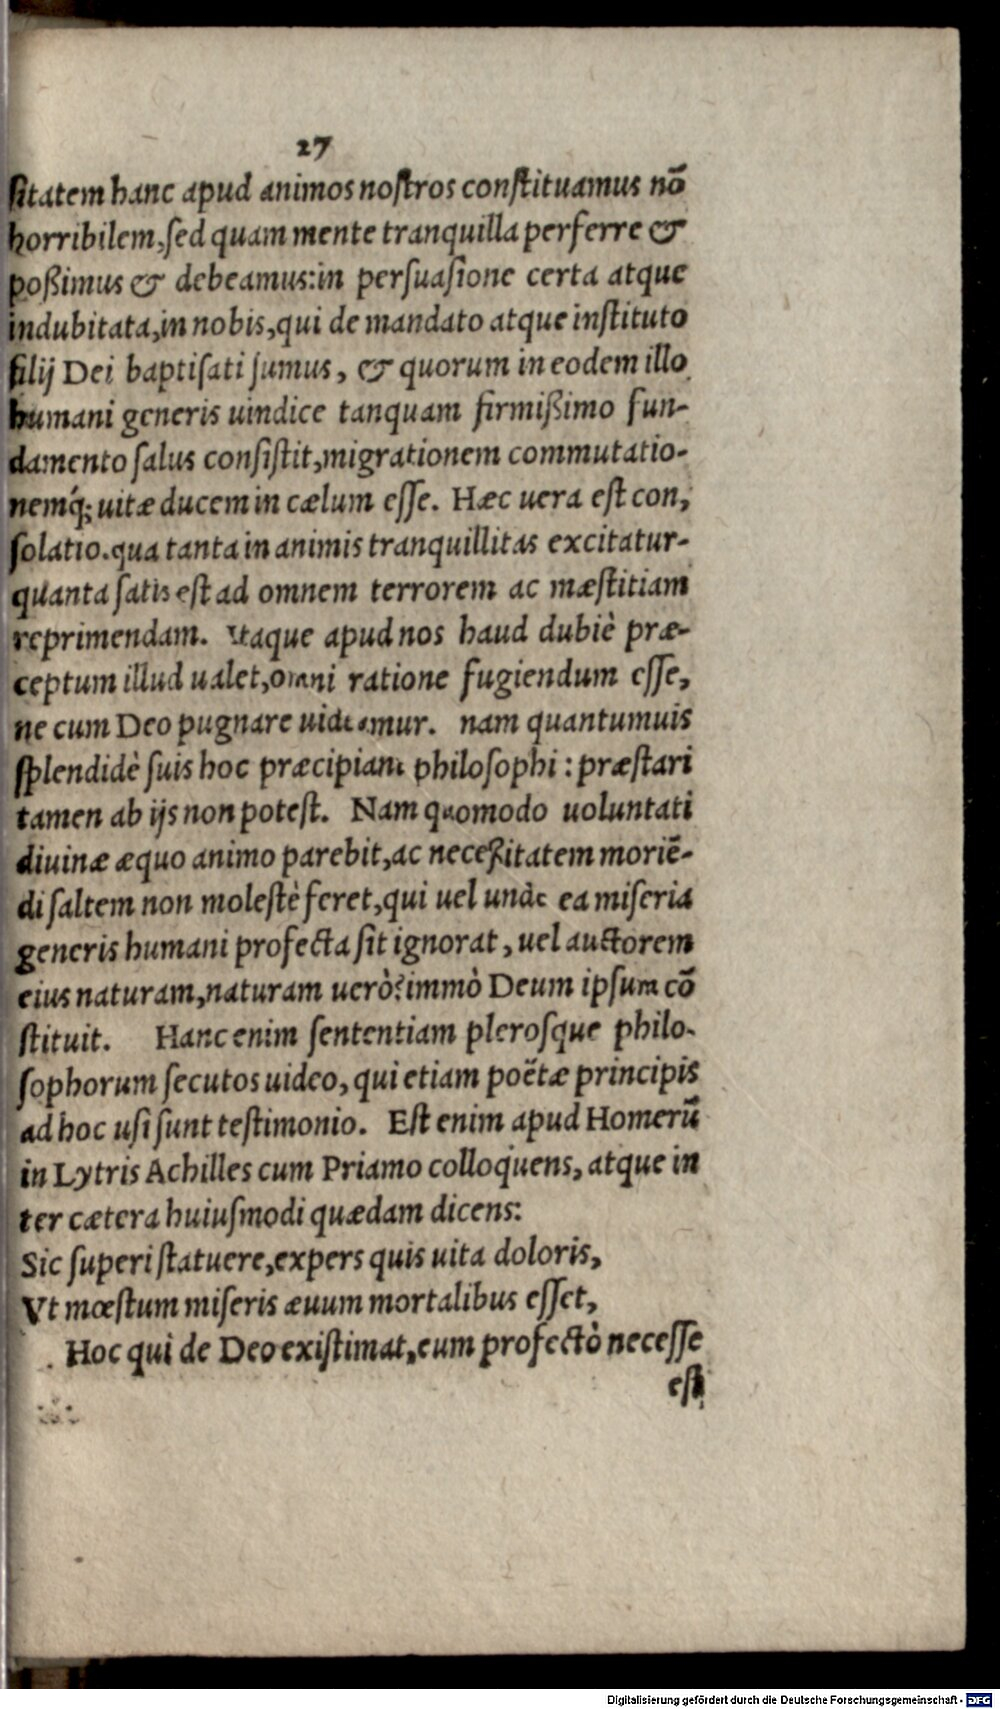 27
sitatem hanc apud animos nostros constituamus nō
horribilem, sed quam mente tranquilla perferre &
poßimus & debeamus: in persuasione certa atque
indubitata, in nobis, qui de mandato atque instituto
filij Dei baptisati sumus, & quorum in eodem illo
humani generis uindice tanquam firmißimo fun-
damento salus consistit, migrationem commutatio-
nemq́; uitæ ducem in cælum esse. Hæc uera est con,
solatio. qua tanta in animis tranquillitas excitatur-
quanta satis est ad omnem terrorem ac mæstitiam
reprimendam. Itaque apud nos haud dubiè præ-
ceptum illud ualet, omni ratione fugiendum esse,
ne cum Deo pugnare uideamur. nam quantumuis
splendidè suis hoc præcipiant philosophi: præstari
tamen ab ijs non potest. Nam quomodo uoluntati
diuinæ æquo animo parebit, ac neceßitatem moriē-
di saltem non molestè feret, qui uel unde ea miseria
generis humani profecta sit ignorat, uel auctorem
eius naturam, naturam uerò? immò Deum ipsum cō
stituit. Hanc enim sententiam plerosque philo-
sophorum secutos uideo, qui etiam poëtæ principis
ad hoc usi sunt testimonio. Est enim apud Homerū
in Lytris Achilles cum Priamo colloquens, atque in
ter cætera huiusmodi quædam dicens:
Sic superi statuere, expers quis uita doloris,
Vt mœstum miseris æuum mortalibus esset,
Hoc qui de Deo existimat, eum profectò necesse
est
Digitalisierung gefördert durch die Deutsche Forschungsgemeinschaft - DFG